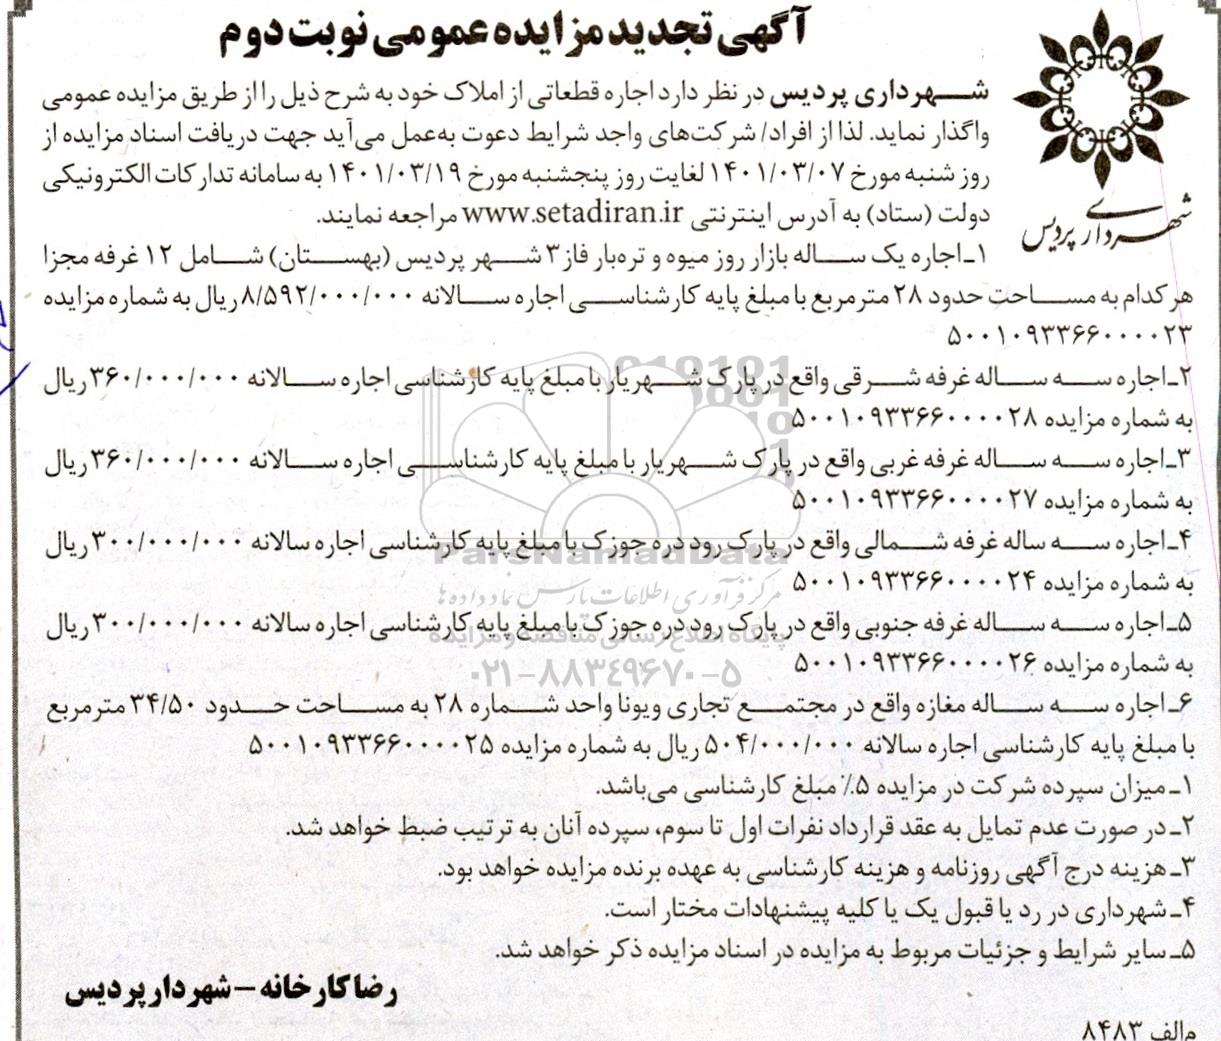 آگهی تجدید مزایده عمومی نوبت دوم
شهرداری پردیس
شهرداری پردیس در نظر دارد اجاره قطعاتی از املاک خود به شرح ذیل را از طریق مزایده عمومی
واگذار نماید. لذا از افراد/ شرکت‌های واجد شرایط دعوت به‌عمل می‌آید جهت دریافت اسناد مزایده از
روز شنبه مورخ ۱۴۰۱/۰۳/۰۷ لغایت روز پنجشنبه مورخ ۱۴۰۱/۰۳/۱۹ به سامانه تدارکات الکترونیکی
دولت (ستاد) به آدرس اینترنتی www.setadiran.ir مراجعه نمایند.
۱ـ اجاره یک ساله بازار روز میوه و تره‌بار فاز ۳ شهر پردیس (بهستان) شامل ۱۲ غرفه مجزا
هر کدام به مساحت حدود ۲۸ مترمربع با مبلغ پایه کارشناسی اجاره سالانه ۸/۵۹۲/۰۰۰/۰۰۰ ریال به شماره مزایده
۵۰۰۱۰۹۳۳۶۶۰۰۰۰۲۳
۲ـ اجاره سه ساله غرفه شرقی واقع در پارک شهریار با مبلغ پایه کارشناسی اجاره سالانه ۳۶۰/۰۰۰/۰۰۰ ریال
به شماره مزایده ۵۰۰۱۰۹۳۳۶۶۰۰۰۰۲۸
۳ـ اجاره سه ساله غرفه غربی واقع در پارک شهریار با مبلغ پایه کارشناسی اجاره سالانه ۳۶۰/۰۰۰/۰۰۰ ریال
به شماره مزایده ۵۰۰۱۰۹۳۳۶۶۰۰۰۰۲۷
۴ـ اجاره سه ساله غرفه شمالی واقع در پارک رود دره جوزک با مبلغ پایه کارشناسی اجاره سالانه ۳۰۰/۰۰۰/۰۰۰ ریال
ParsNamadData
به شماره مزایده ۵۰۰۱۰۹۳۳۶۶۰۰۰۰۲۴
مرکز فرآوری اطلاعات پارس نماد داده ها
۵ـ اجاره سه ساله غرفه جنوبی واقع در پارک رود دره جوزک با مبلغ پایه کارشناسی اجاره سالانه ۳۰۰/۰۰۰/۰۰۰ ریال
پایگاه اطلاع رسانی مناقصه و مزایده
به شماره مزایده ۵۰۰۱۰۹۳۳۶۶۰۰۰۰۲۶
۰۲۱-۸۸۳۴۹۶۷۰-۵
۶ـ اجاره سه ساله مغازه واقع در مجتمع تجاری ویونا واحد شماره ۲۸ به مساحت حدود ۳۴/۵۰ مترمربع
با مبلغ پایه کارشناسی اجاره سالانه ۵۰۴/۰۰۰/۰۰۰ ریال به شماره مزایده ۵۰۰۱۰۹۳۳۶۶۰۰۰۰۲۵
۱ـ میزان سپرده شرکت در مزایده ۵٪ مبلغ کارشناسی می‌باشد.
۲ـ در صورت عدم تمایل به عقد قرارداد نفرات اول تا سوم، سپرده آنان به ترتیب ضبط خواهد شد.
۳ـ هزینه درج آگهی روزنامه و هزینه کارشناسی به عهده برنده مزایده خواهد بود.
۴ـ شهرداری در رد یا قبول یک یا کلیه پیشنهادات مختار است.
۵ـ سایر شرایط و جزئیات مربوط به مزایده در اسناد مزایده ذکر خواهد شد.
رضا کارخانه – شهردار پردیس
م الف ۸۴۸۳